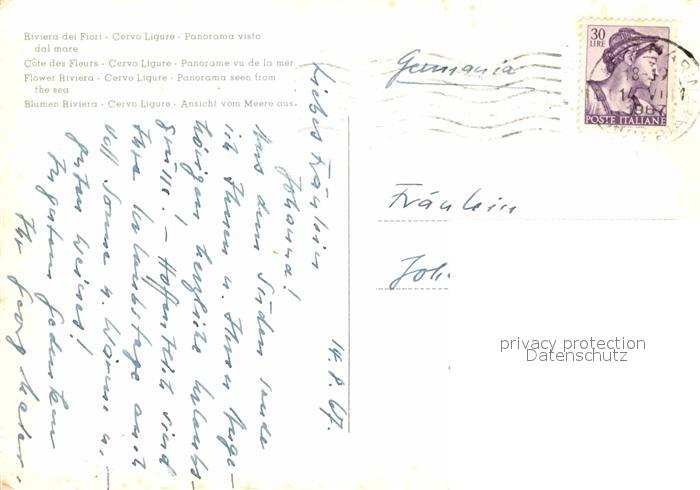 Riviera dei Fiori - Cervo Ligure - Panorama visto
dal mare
Côte des Fleurs - Cervo Ligure - Panorame vu de la mer
Flower Riviera - Cervo Ligure - Panorama seen from
the sea
Blumen Riviera - Cervo Ligure - Ansicht vom Meere aus.
14. 8. 67.
Liebes Fräulein
Johanna!
Aus dem Süden sende
ich Ihnen u. Ihren Ange-
hörigen herzliche Urlaubs-
grüße. - Hoffentlich sind
Ihre Urlaubstage auch
voll Sonne u. Wärme u. -
guten Weines!
In gutem Gedenken
Ihr Georg
Germania
30
LIRE
POSTE ITALIANE
18-19
1967
Fräulein
Joh.
privacy protection
Datenschutz